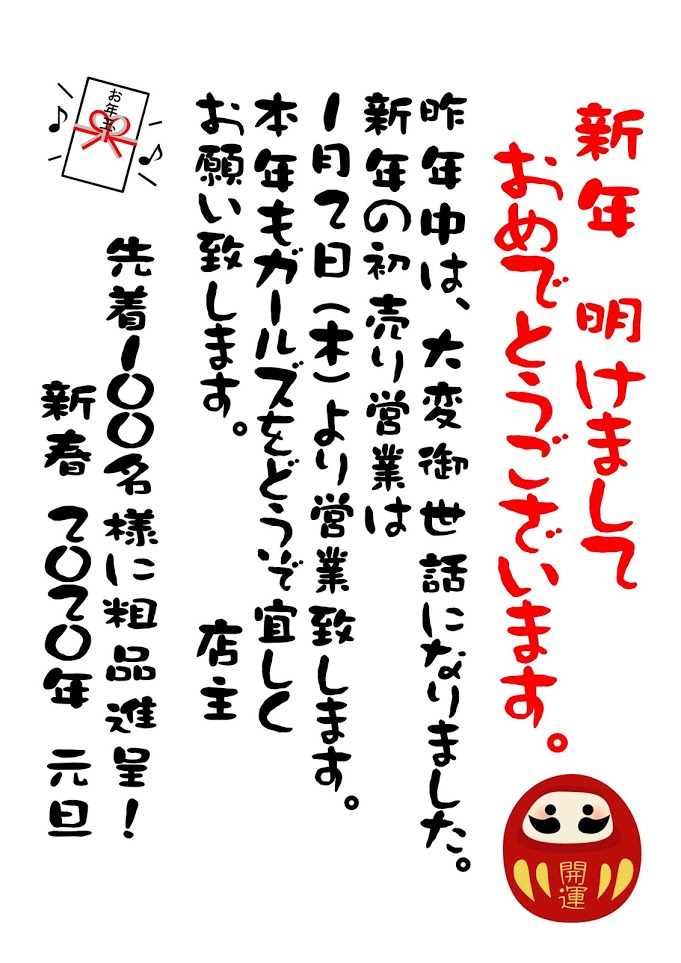 新年　明けまして
おめでとうございます。
昨年中は、大変御世話になりました。
新年の初売り営業は
1月2日(木)より営業致します。
本年もガールズをどうぞ宜しく
お願い致します。　店主
先着100名様に粗品進呈！
新春 2020年 元旦
お年玉
開運